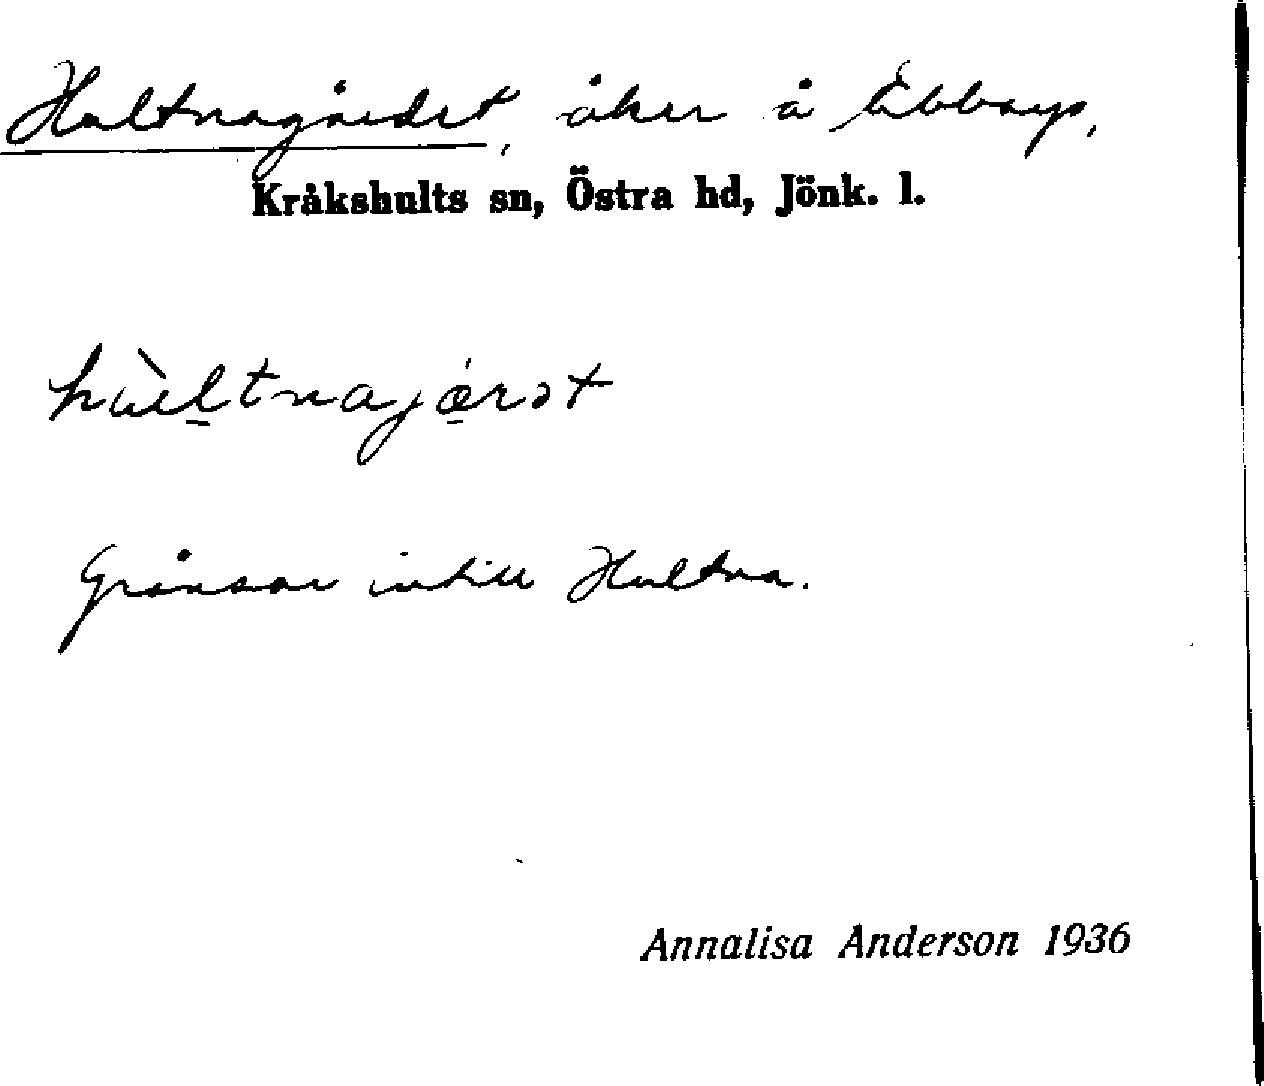 Hultnagärdet, åker å Ebbarp,
Kråkshults sn, Östra hd, Jönk. l.
Gränsar intill Hultna.
Annalisa Anderson 1936